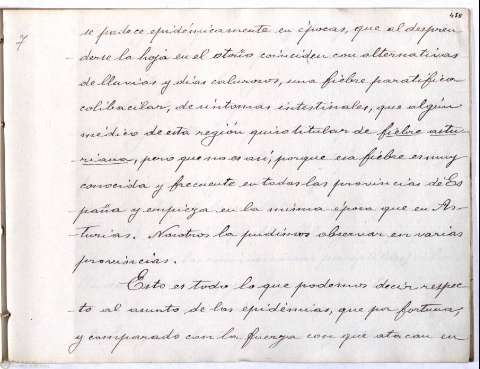 450
7
se padece epidémicamente en épocas, que al despren-
derse la hoja en el otoño coinciden con alternativas
de lluvias y días calurosos, una fiebre paratífica
colibacilar, de síntomas intestinales, que algún
médico de esta región quiso titular de fiebre astu-
riana, pero que no es así, porque esa fiebre es muy
conocida y frecuente en todas las provincias de Es-
paña y empieza en la misma época que en As-
turias. Nosotros la pudimos observar en varias
provincias.
Esto es todo lo que podemos decir respec-
to al asunto de las epidémias, que por fortuna,
y comparado con la fuerza con que atacan en